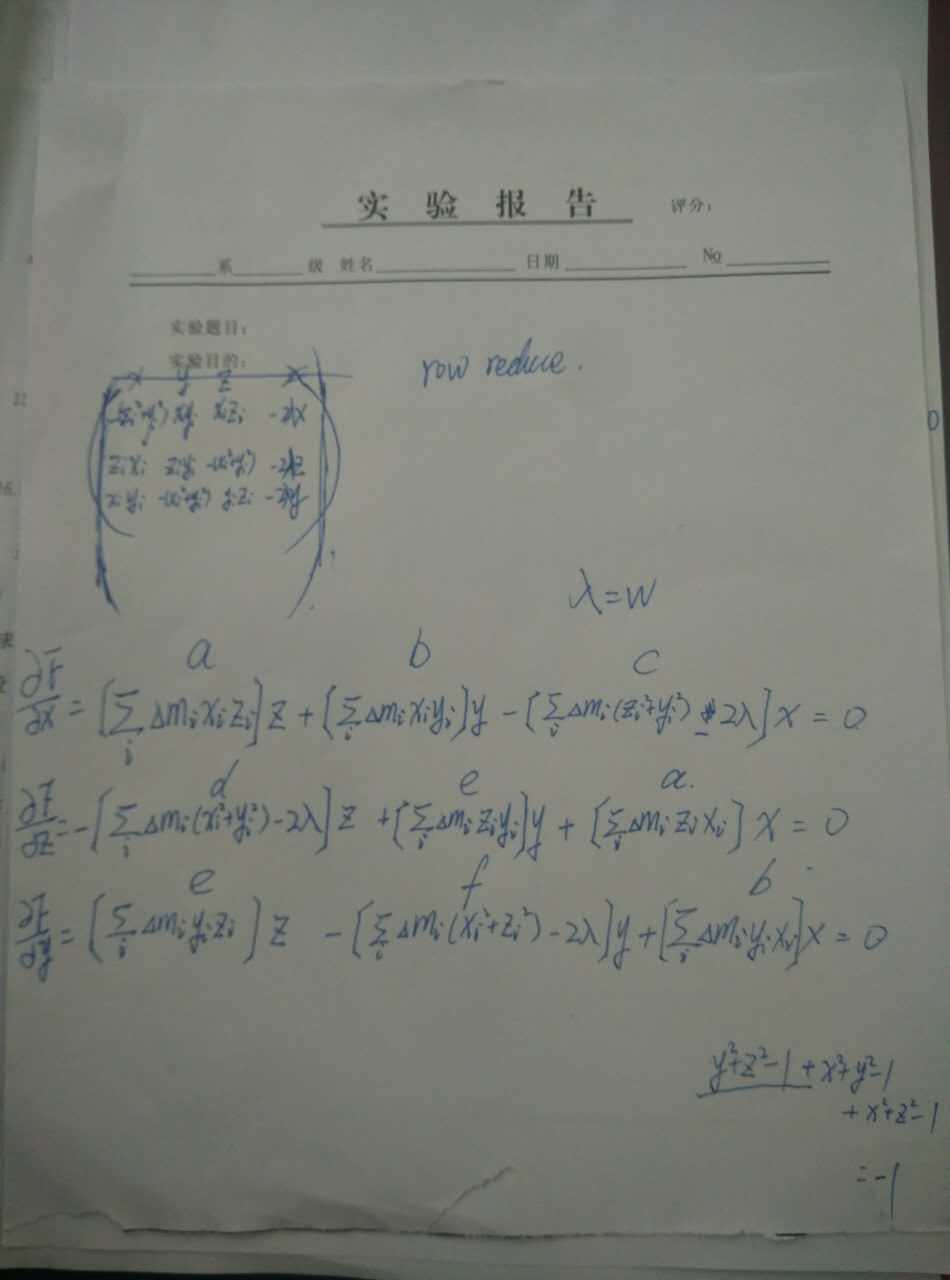 实验报告 评分：
系 级 姓名 日期 No
实验题目：
实验目的：
row reduce.
x y z
x_i z_i
z_i x_i z_i y_i -(x_i²+y_i²)
x_i y_i -(x_i²+z_i²) y_i z_i
λ=W
a b c
∂F/∂x = [∑_i Δm_i x_i z_i] z + [∑_i Δm_i x_i y_i] y - [∑_i Δm_i (z_i²+y_i²) - 2λ] x = 0
d e a.
∂F/∂z = -[∑_i Δm_i (x_i²+y_i²) - 2λ] z + [∑_i Δm_i z_i y_i] y + [∑_i Δm_i z_i x_i] x = 0
e f b
∂F/∂y = [∑_i Δm_i y_i z_i] z - [∑_i Δm_i (x_i²+z_i²) - 2λ] y + [∑_i Δm_i y_i x_i] x = 0
y²+z²-1 + x²+y²-1
+ x²+z²-1
= -1